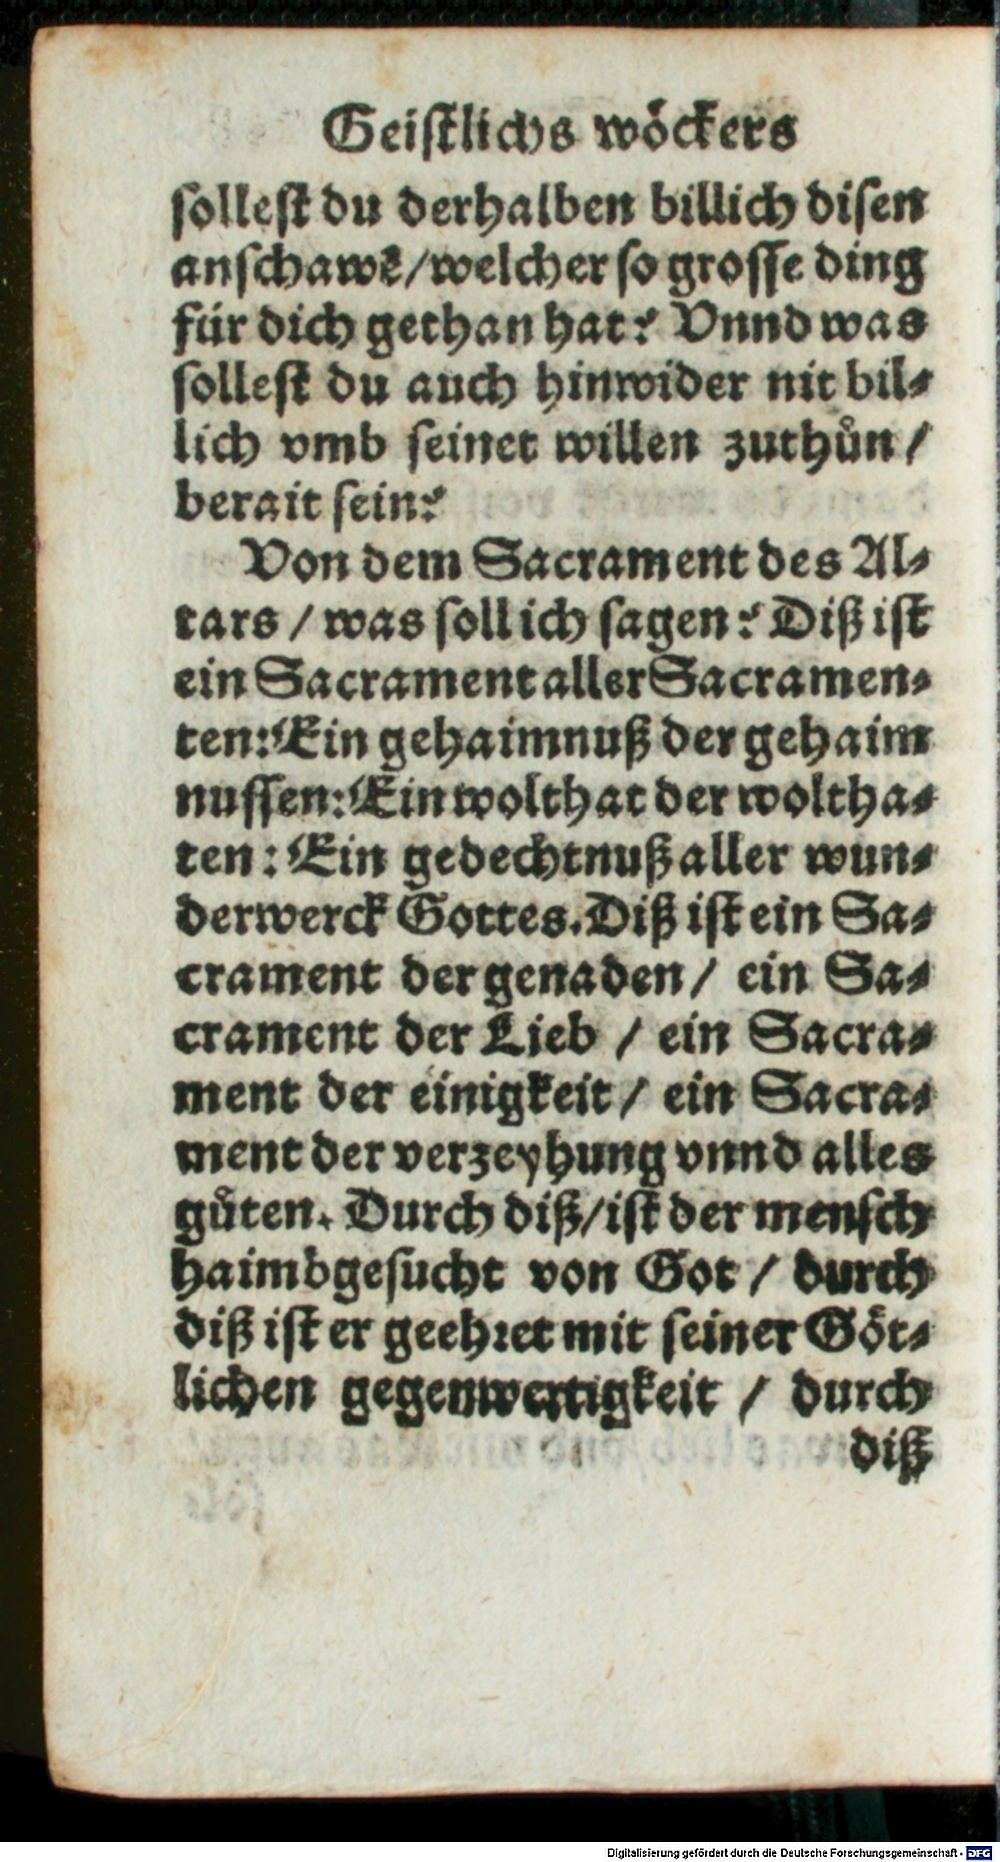 Geistlichs wöckers
sollest du derhalben billich disen
anschawẽ/welcher so grosse ding
für dich gethan hat? Vnnd was
sollest du auch hinwider nit bil⸗
lich vmb seinet willen zuthůn/
berait sein?
Von dem Sacrament des Al⸗
tars / was soll ich sagen? Diß ist
ein Sacrament aller Sacramen⸗
ten: Ein gehaimnuß der gehaim
nussen: Ein wolthat der woltha⸗
ten: Ein gedechtnuß aller wun⸗
derwerck Gottes. Diß ist ein Sa⸗
crament der genaden/ ein Sa⸗
crament der Lieb / ein Sacra⸗
ment der einigkeit/ ein Sacra⸗
ment der verzeyhung vnnd alles
gůten. Durch diß/ist der mensch
haimbgesucht von Got / durch
diß ist er geehret mit seiner Göt⸗
lichen gegenwertigkeit / durch
diß
Digitalisierung gefördert durch die Deutsche Forschungsgemeinschaft - DFG